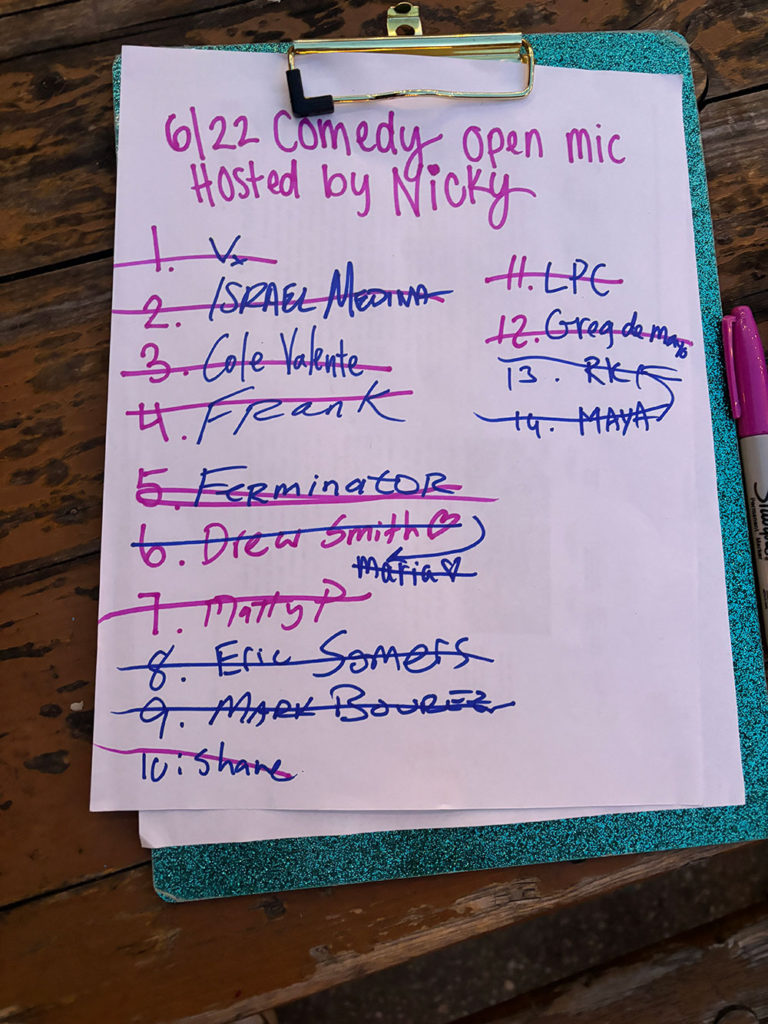 6/22 Comedy open mic
Hosted by Nicky
1. Vx
2. ISRAEL MEDINA
3. Cole Valente
4. Frank
5. FERMINATOR
6. Drew Smith♡
maria♡
7. Matty P
8. Eric Somers
9. MARK BOUREZ
10: Shane
11. LPC
12. Greg de
13. RK
14. MAYA
Sharpie